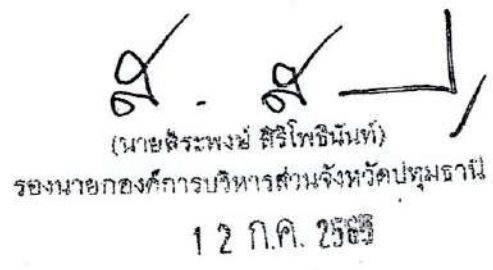 (นายสิระพงษ์ สิริโพธินันท์)
รองนายกองค์การบริหารส่วนจังหวัดปทุมธานี
12 ก.ค. 2565